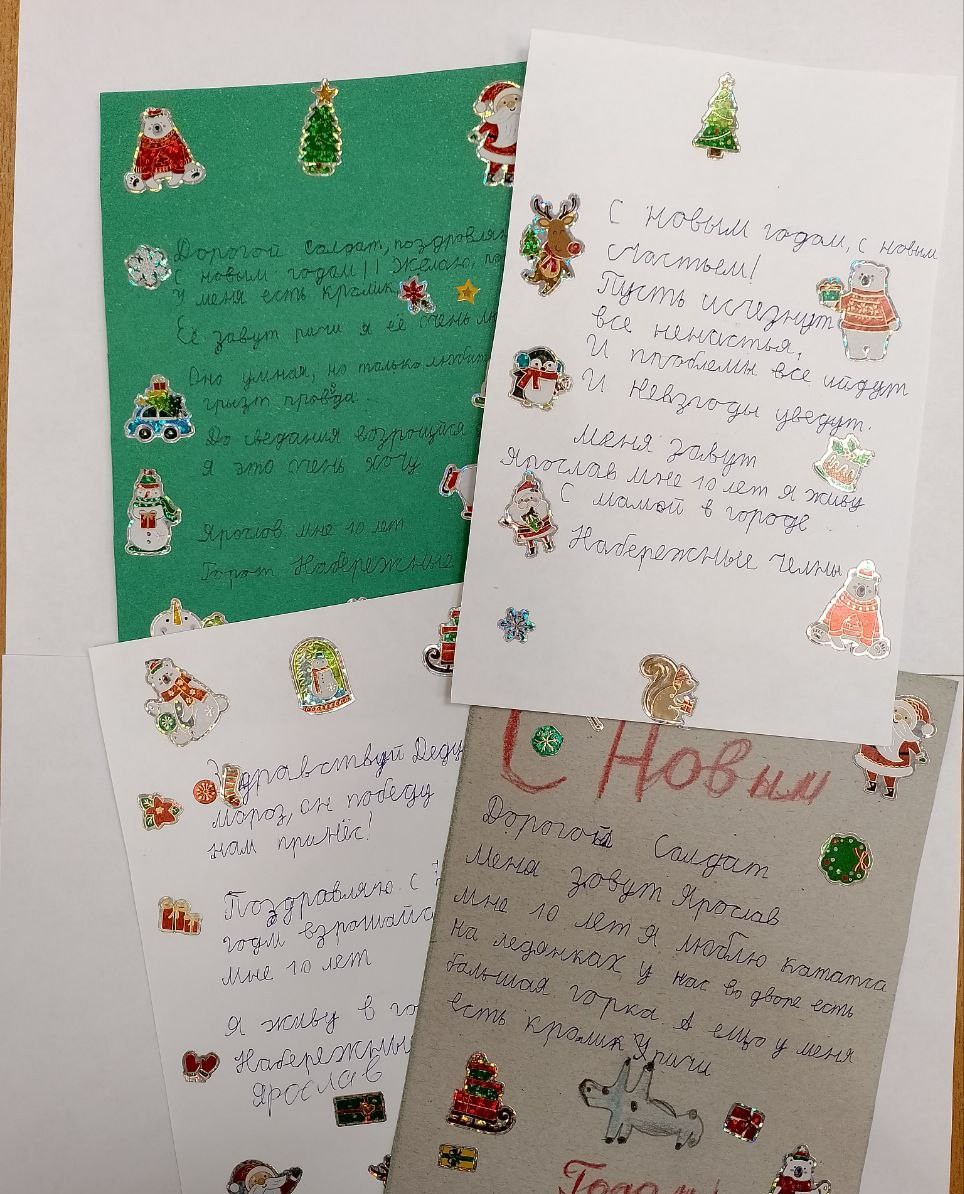 Дорогой Солдат, поздравля
С новым годом!! Желаю, по
У меня есть кролик
Её завут ричи я её очень лю
Она умная, но только любит
грызт провда.
До сведания возрощуйся
я это очень хочу
Ярослов мне 10 лет
Город Набережные
С новым годом, с новым
счастьем!
Пусть исчезнут
все ненастья,
И проблемы все уйдут
И невзгоды уведут.
Меня завут
Ярослав мне 10 лет я живу
С мамой в городе
Набережные Челны
Здравствуй Деду
мороз, он победу
нам принёс!
Поздравляю с
годм взрощайся
мне 10 лет
Я живу в го
Набережны
Ярослав
С Новым
Дорогой Солдат
Меня зовут Ярослав
Мне 10 лет Я люблю кататса
на ледянках у нас во дворе есть
большая горка. А ещо у меня
есть кролик Ричи
Годом!